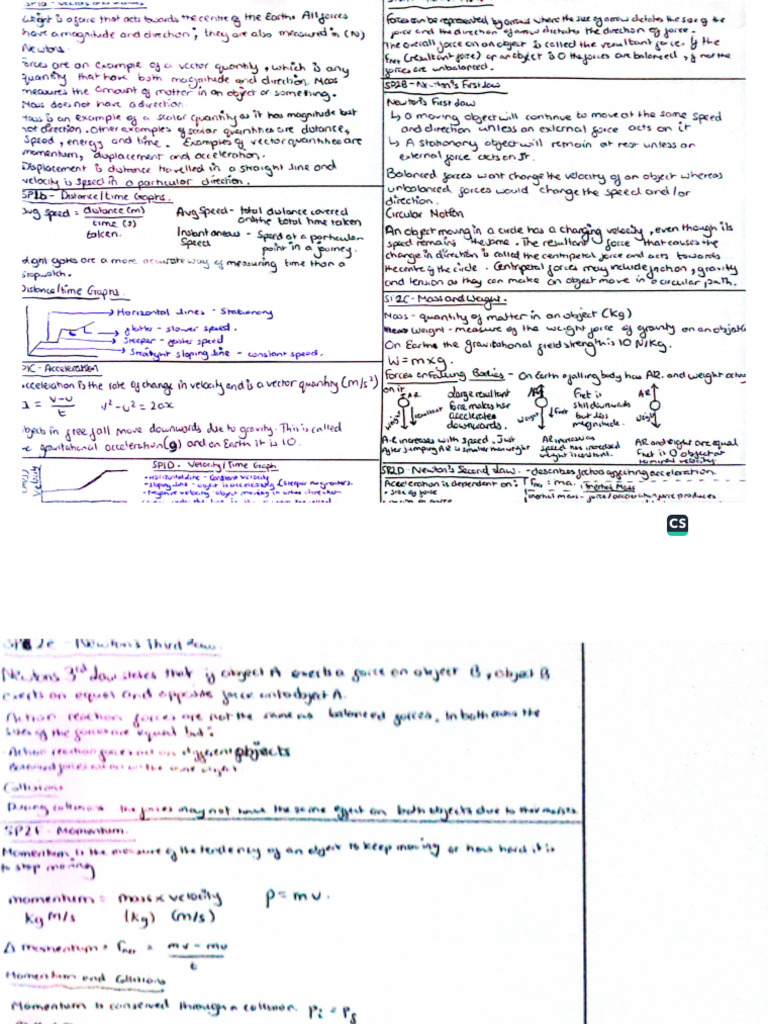 SP1a - Vectors and Scalars
Weight is a force that acts towards the centre of the Earth. All forces
have a magnitude and direction; they are also measured in (N)
Newtons.
Forces are an example of a vector quantity, which is any
quantity that have both magnitude and direction. Mass
measures the amount of matter in an object or something.
Mass does not have a direction.
Mass is an example of a scalar quantity as it has magnitude but
not direction. Other examples of scalar quantities are distance,
speed, energy and time. Examples of vector quantities are
momentum, displacement and acceleration.
Displacement is distance travelled in a straight line and
velocity is speed in a particular direction.
SP1b - Distance/time Graphs.
avg speed = distance (m)
time (s)
taken.
Avg Speed - total distance covered
over the total time taken
Instantaneous - Speed at a particular
Speed point in a journey.
Light gates are a more accurate way of measuring time than a
stopwatch.
Distance/time Graphs
Horizontal lines - Stationary
flatter - slower speed.
Steeper - faster speed
Straight sloping line - constant speed.
SP1C - Acceleration
acceleration is the rate of change in velocity and is a vector quantity (m/s²)
a = v-u
t
v² - u² = 2ax
objects in free fall move downwards due to gravity. This is called
gravitational acceleration (g) and on Earth it is 10.
SP1D - Velocity/Time Graph
• Horizontal line - Constant velocity
• Negative velocity object moving in other direction
Forces can be represented by arrows where the size of arrow dictates the size of the
force and the direction of arrow dictates the direction of force.
The overall force on an object is called the resultant force. If the
Fnet (resultant force) on an object is 0 the forces are balanced, if not the
forces are unbalanced.
SP2B - Newton's First Law
Newton's First Law
↳ a moving object will continue to move at the same speed
and direction unless an external force acts on it
↳ A stationary object will remain at rest unless an
external force acts on it.
Balanced forces wont change the velocity of an object whereas
unbalanced forces would change the speed and/or
direction.
Circular Motion
An object moving in a circle has a changing velocity, even though its
speed remains the same. The resultant force that causes the
change in direction is called the centripetal force and acts towards
the centre of the circle. Centripetal forces may include friction, gravity
and tension as they can make an object move in a circular path.
SP2C - Mass and Weight.
Mass - quantity of matter in an object (kg)
Weight - measure of the weight force of gravity on an object
On Earth the gravitational field strength is 10 N/kg.
W = m x g.
Forces on Falling Bodies - On Earth a falling body has AR. and weight acting
on it
A.R.
weight
resultant
a large resultant
force makes her
accelerate
downwards.
AR
weight
Fnet
Fnet is
still downwards
but less
magnitude.
AR
weight
AR increases with speed. Just
after jumping AR is smaller than weight
AR increases as
speed has increased
weight is constant.
AR and weight are equal
Fnet is 0 object at
terminal velocity
SP2D - Newton's Second Law. - describes factors affecting acceleration
Acceleration is dependent on:
• size of force
Fnet = ma.
Inertial Mass
inertial mass - force/acceleration force produces
CS
SP2e - Newton's Third Law.
Newtons 3rd law states that if object A exerts a force on object B, object B
exerts an equal and opposite force onto object A.
Action reaction forces are not the same as balanced forces. In both cases the
sizes of the forces are equal but:
Action reaction forces act on different objects
Balanced forces act on the same object
Collisions
During collisions the forces may not have the same effect on both objects due to their masses.
SP2F - Momentum.
Momentum is the measure of the tendency of an object to keep moving or how hard it is
to stop moving
momentum = mass x velocity
kg m/s (kg) (m/s)
p = mv.
Δ momentum = Fnet = mv - mu
t
Momentum and Collisions
Momentum is conserved through a collision. Pi = Pf